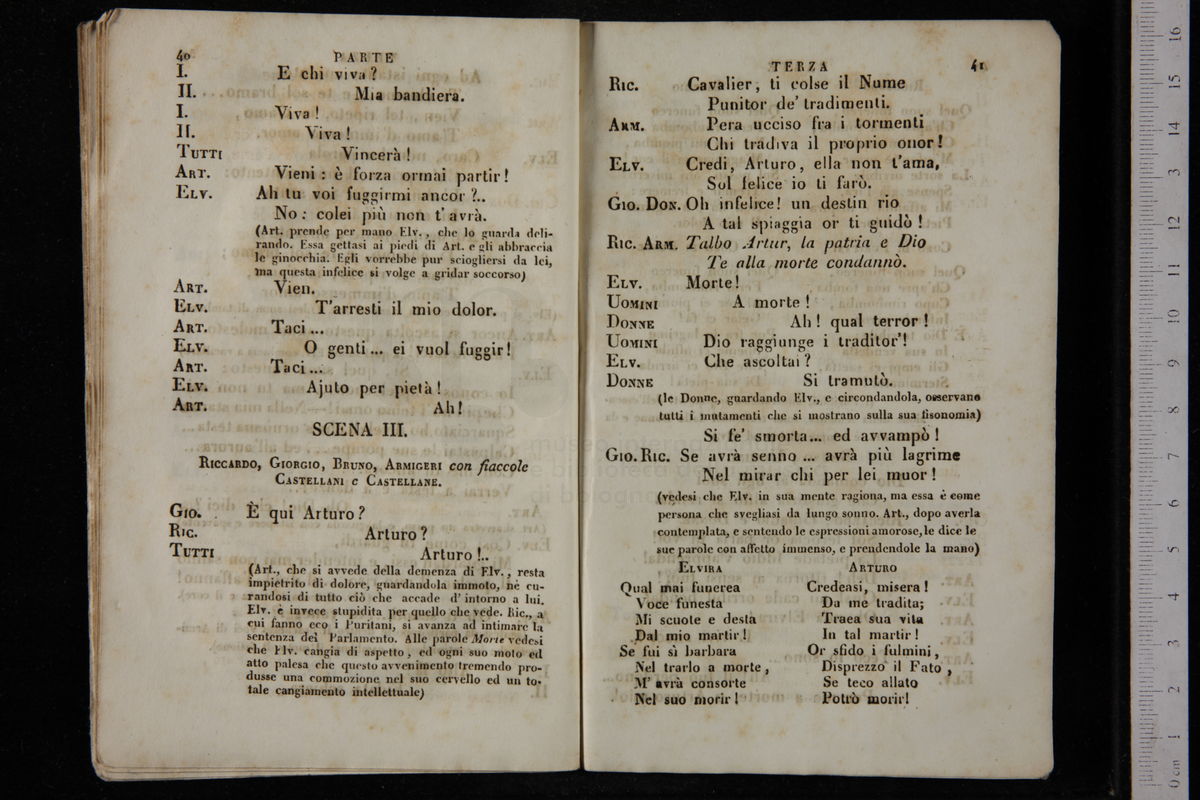 40 PARTE
I. E chi viva?
II. Mia bandiera.
I. Viva!
II. Viva!
TUTTI Vincerà!
ART. Vieni: è forza ormai partir!
ELV. Ah tu voi fuggirmi ancor?..
No: colei più non t'avrà.
(Art. prende per mano Elv., che lo guarda deli-
rando. Essa gettasi ai piedi di Art. e gli abbraccia
le ginocchia. Egli vorrebbe pur sciogliersi da lei,
ma questa infelice si volge a gridar soccorso)
ART. Vien.
ELV. T'arresti il mio dolor.
ART. Taci...
ELV. O genti... ei vuol fuggir!
ART. Taci...
ELV. Ajuto per pietà!
ART. Ah!
SCENA III.
RICCARDO, GIORGIO, BRUNO, ARMIGERI con fiaccole
CASTELLANI e CASTELLANE.
GIO. È qui Arturo?
RIC. Arturo?
TUTTI Arturo!..
(Art., che si avvede della demenza di Elv., resta
impietrito di dolore, guardandola immoto, nè cu-
randosi di tutto ciò che accade d'intorno a lui.
Elv. è invece stupidita per quello che vede. Ric., a
cui fanno eco i Puritani, si avanza ad intimare la
sentenza del Parlamento. Alle parole Morte vedesi
che Elv. cangia di aspetto, ed ogni suo moto ed
atto palesa che questo avvenimento tremendo pro-
dusse una commozione nel suo cervello ed un to-
tale cangiamento intellettuale)
TERZA 41
RIC. Cavalier, ti colse il Nume
Punitor de' tradimenti.
ARM. Pera ucciso fra i tormenti
Chi tradiva il proprio onor!
ELV. Credi, Arturo, ella non t'ama,
Sol felice io ti farò.
GIO. DON. Oh infelice! un destin rio
A tal spiaggia or ti guidò!
RIC. ARM. Talbo Artur, la patria e Dio
Te alla morte condannò.
ELV. Morte!
UOMINI A morte!
DONNE Ah! qual terror!
UOMINI Dio raggiunge i traditor'!
ELV. Che ascoltai?
DONNE Si tramutò.
(le Donne, guardando Elv., e circondandola, osservano
tutti i mutamenti che si mostrano sulla sua fisonomia)
Si fe' smorta... ed avvampò!
GIO. RIC. Se avrà senno... avrà più lagrime
Nel mirar chi per lei muor!
(vedesi che Elv. in sua mente ragiona, ma essa è come
persona che svegliasi da lungo sonno. Art., dopo averla
contemplata, e sentendo le espressioni amorose, le dice le
sue parole con affetto immenso, e prendendole la mano)
ELVIRA
Qual mai funerea
Voce funesta
Mi scuote e desta
Dal mio martir!
Se fui sì barbara
Nel trarlo a morte,
M'avrà consorte
Nel suo morir!
ARTURO
Credeasi, misera!
Da me tradita;
Traea sua vita
In tal martir!
Or sfido i fulmini,
Disprezzo il Fato,
Se teco allato
Potrò morir!